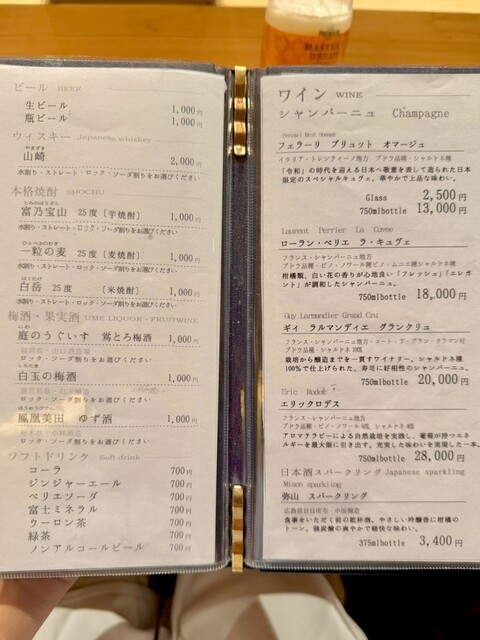 PREMIUM
MASTER'S
DREAM
ビール BEER
生ビール 1,000円
瓶ビール 1,000円
ウィスキー Japanese whiskey
やまざき
山崎 2,000円
水割り・ストレート・ロック・ソーダ割りをお選びください
本格焼酎 SHOCHU
とみのほうざん
富乃宝山 25度［芋焼酎］ 1,000円
水割り・ストレート・ロック・ソーダ割りをお選びください
ひとつぶのむぎ
一粒の麦 25度［麦焼酎］ 1,000円
水割り・ストレート・ロック・ソーダ割りをお選びください
はくたけ
白岳 25度 ［米焼酎］ 1,000円
水割り・ストレート・ロック・ソーダ割りをお選びください
梅酒・果実酒 UME LIQUOR・FRUITWINE
にわ
庭のうぐいす 鶯とろ梅酒 1,000円
福岡県・山口酒造場
ロック・ソーダ割りをお選びください
しらたま
白玉の梅酒 1,000円
鹿児島県・白玉醸造
ロック・ソーダ割りをお選びください
ほうおうびでん
鳳凰美田 ゆず酒 1,000円
栃木県・小林酒造
ロック・ソーダ割りをお選びください
ソフトドリンク Soft drink
コーラ 700円
ジンジャーエール 700円
ペリエソーダ 700円
富士ミネラル 700円
ウーロン茶 700円
緑茶 700円
ノンアルコールビール 700円
ワイン WINE
シャンパーニュ Champagne
Ferrari Brut Omaggio
フェラーリ ブリュット オマージュ
イタリア・トレンティーノ地方 ブドウ品種・シャルドネ種
「令和」の時代を迎える日本へ敬意を表して造られた日本
限定のスペシャルキュヴェ。華やかで上品な味わい。
Glass 2,500円
750mlbottle 13,000円
Laurent Perrier La Cuvee
ローラン・ペリエ ラ・キュヴェ
フランス・シャンパーニュ地方
ブドウ品種・ピノ・ノワール種ピノ・ムニエ種シャルドネ種
柑橘類、白い花の香りが心地良い・「フレッシュ」「エレガ
ント」が調和したシャンパーニュ。
750mlbottle 18,000円
Guy Larmandier Grand Cru
ギィ ラルマンディエ グランクリュ
フランス・シャンパーニュ地方・コート・デ・ブラン・クラマン村
ブドウ品種・シャルドネ 100%
栽培から醸造までを一貫すワイナリー。シャルドネ種
100%で仕上げられた。寿司に好相性のシャンパーニュ。
750mlbottle 20,000円
Eric Rodez
エリックロデス
フランス・シャンパーニュ地方
ブドウ品種・ピノ・ノワール種 シャルドネ種
アロマテラピーによる自然栽培を実践し、葡萄が持つエネ
ルギーを最大限に引き出す。充実した味わいを実現した一本。
750mlbottle 28,000円
日本酒スパークリング Japanese sparkling
Misen sparkling
弥山 スパークリング
広島県廿日市市・中国醸造
食事をいただく前の乾杯酒、やさしい吟醸香に柑橘の
トーン。強炭酸の爽やかで軽快な味わい。
375mlbottle 3,400円